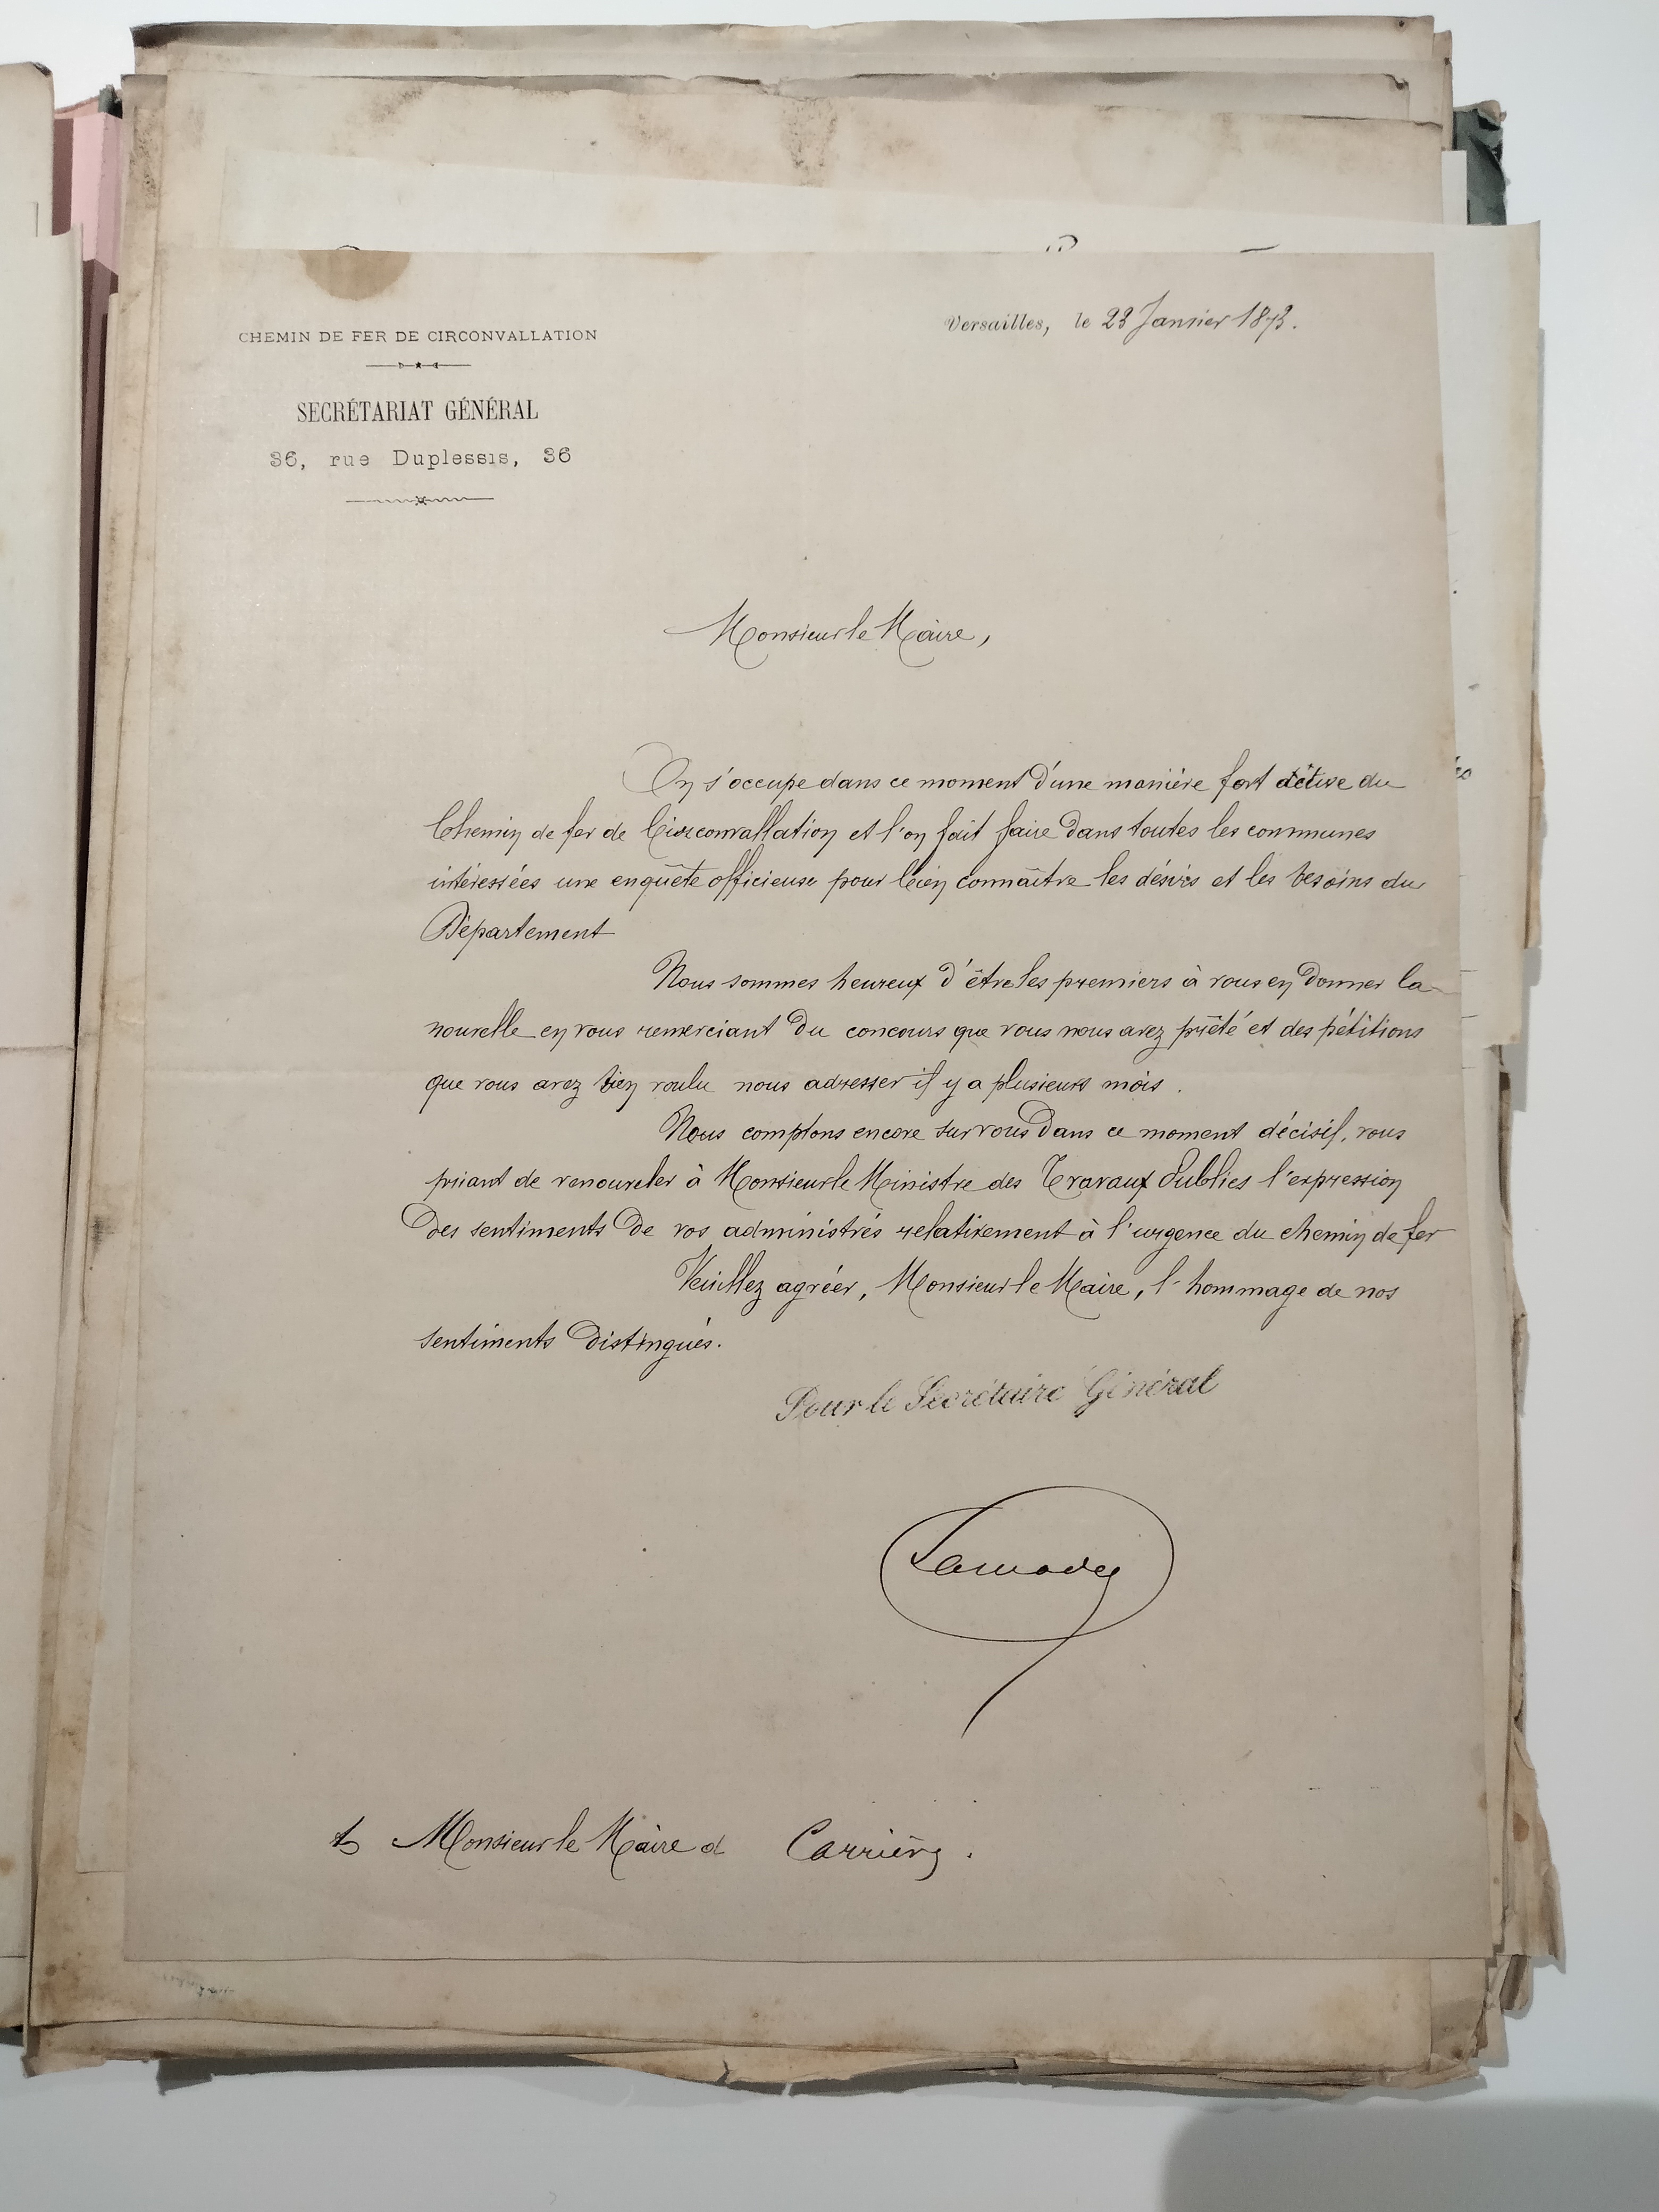 CHEMIN DE FER DE CIRCONVALLATION
SECRÉTARIAT GÉNÉRAL
36, rue Duplessis, 36
Versailles, le 23 Janvier 1873.
Monsieur le Maire,
On s'occupe dans ce moment d'une manière fort active du
Chemin de fer de Circonvallation et l'on fait faire dans toutes les communes
intéressées une enquête officieuse pour bien connaître les désirs et les besoins du
Département
Nous sommes heureux d'être les premiers à vous en donner la
nouvelle en vous remerciant du concours que vous nous avez prêté et des pétitions
que vous avez bien voulu nous adresser il y a plusieurs mois.
Nous comptons encore sur vous dans ce moment décisif, vous
priant de renouveler à Monsieur le Ministre des Travaux Publics l'expression
des sentiments de vos administrés relativement à l'urgence du chemin de fer
Veuillez agréer, Monsieur le Maire, l'hommage de nos
sentiments distingués.
Pour le Secrétaire Général
A Monsieur le Maire d Carrières.